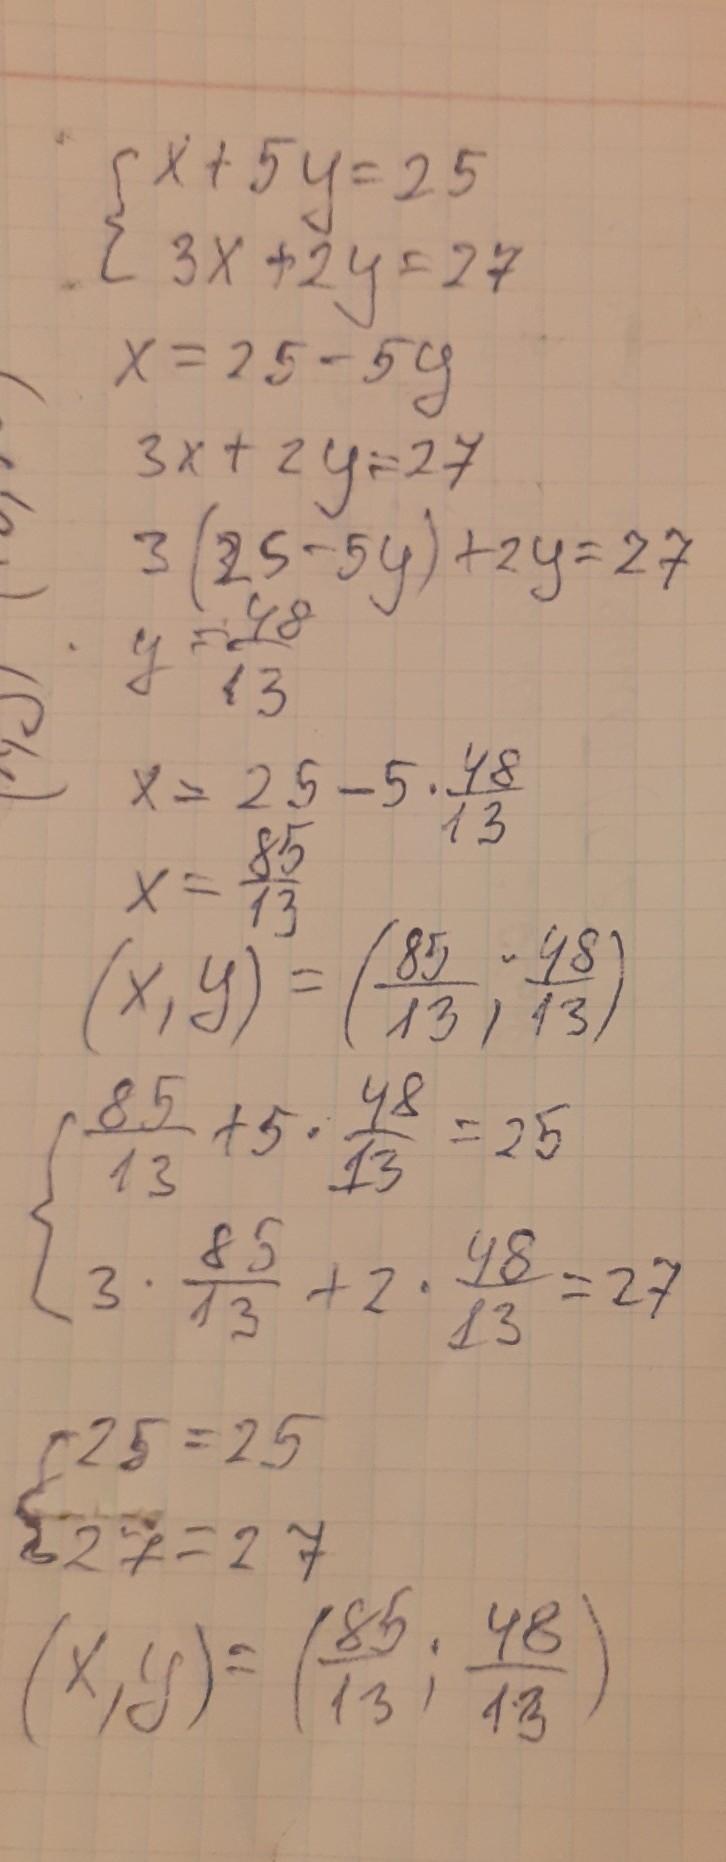 { x + 5y = 25
3x + 2y = 27
x = 25 - 5y
3x + 2y = 27
3(25 - 5y) + 2y = 27
y = 48/13
x = 25 - 5 · 48/13
x = 85/13
(x, y) = (85/13 ; 48/13)
{ 85/13 + 5 · 48/13 = 25
3 · 85/13 + 2 · 48/13 = 27
{ 25 = 25
27 = 27
(x, y) = (85/13 ; 48/13)